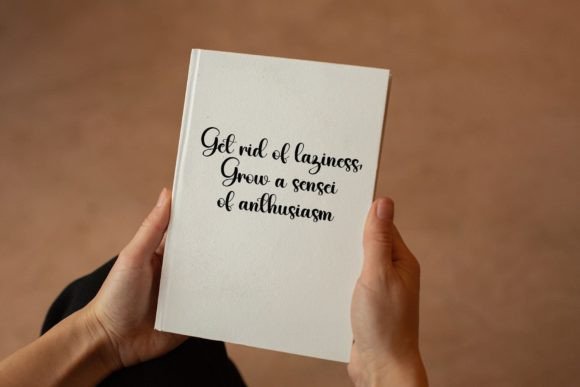 Get rid of laziness,
Grow a sensei
of anthusiasm